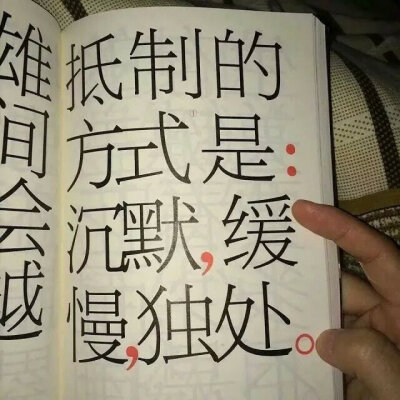 抵制的
方式是:
沉默,缓
慢,独处。
雄
间
会
越